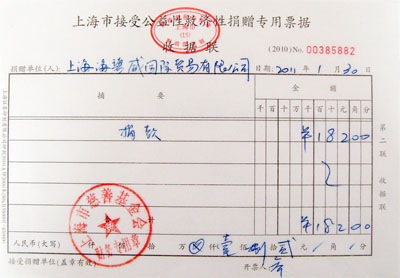 上海市接受公益性救济性捐赠专用票据
收据联
(2010) No. 00385882
捐赠单位(人): 上海海 威国际贸易有限公司 日期: 2011年1月30日
摘要 金额
千百十万千百十元角分
捐款 ¥18200
合计 ¥18200
人民币(大写) 仟 佰 拾 万 仟 壹佰 捌拾 贰元 / 角 / 分
接受捐赠单位(盖章有效) 开票人:
第二联 收据联
上海市慈善基金会